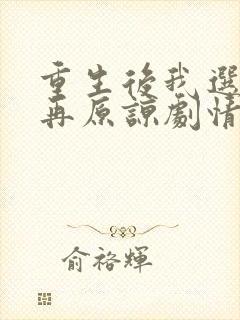 重生後我選
再原諒劇情
俞裕輝